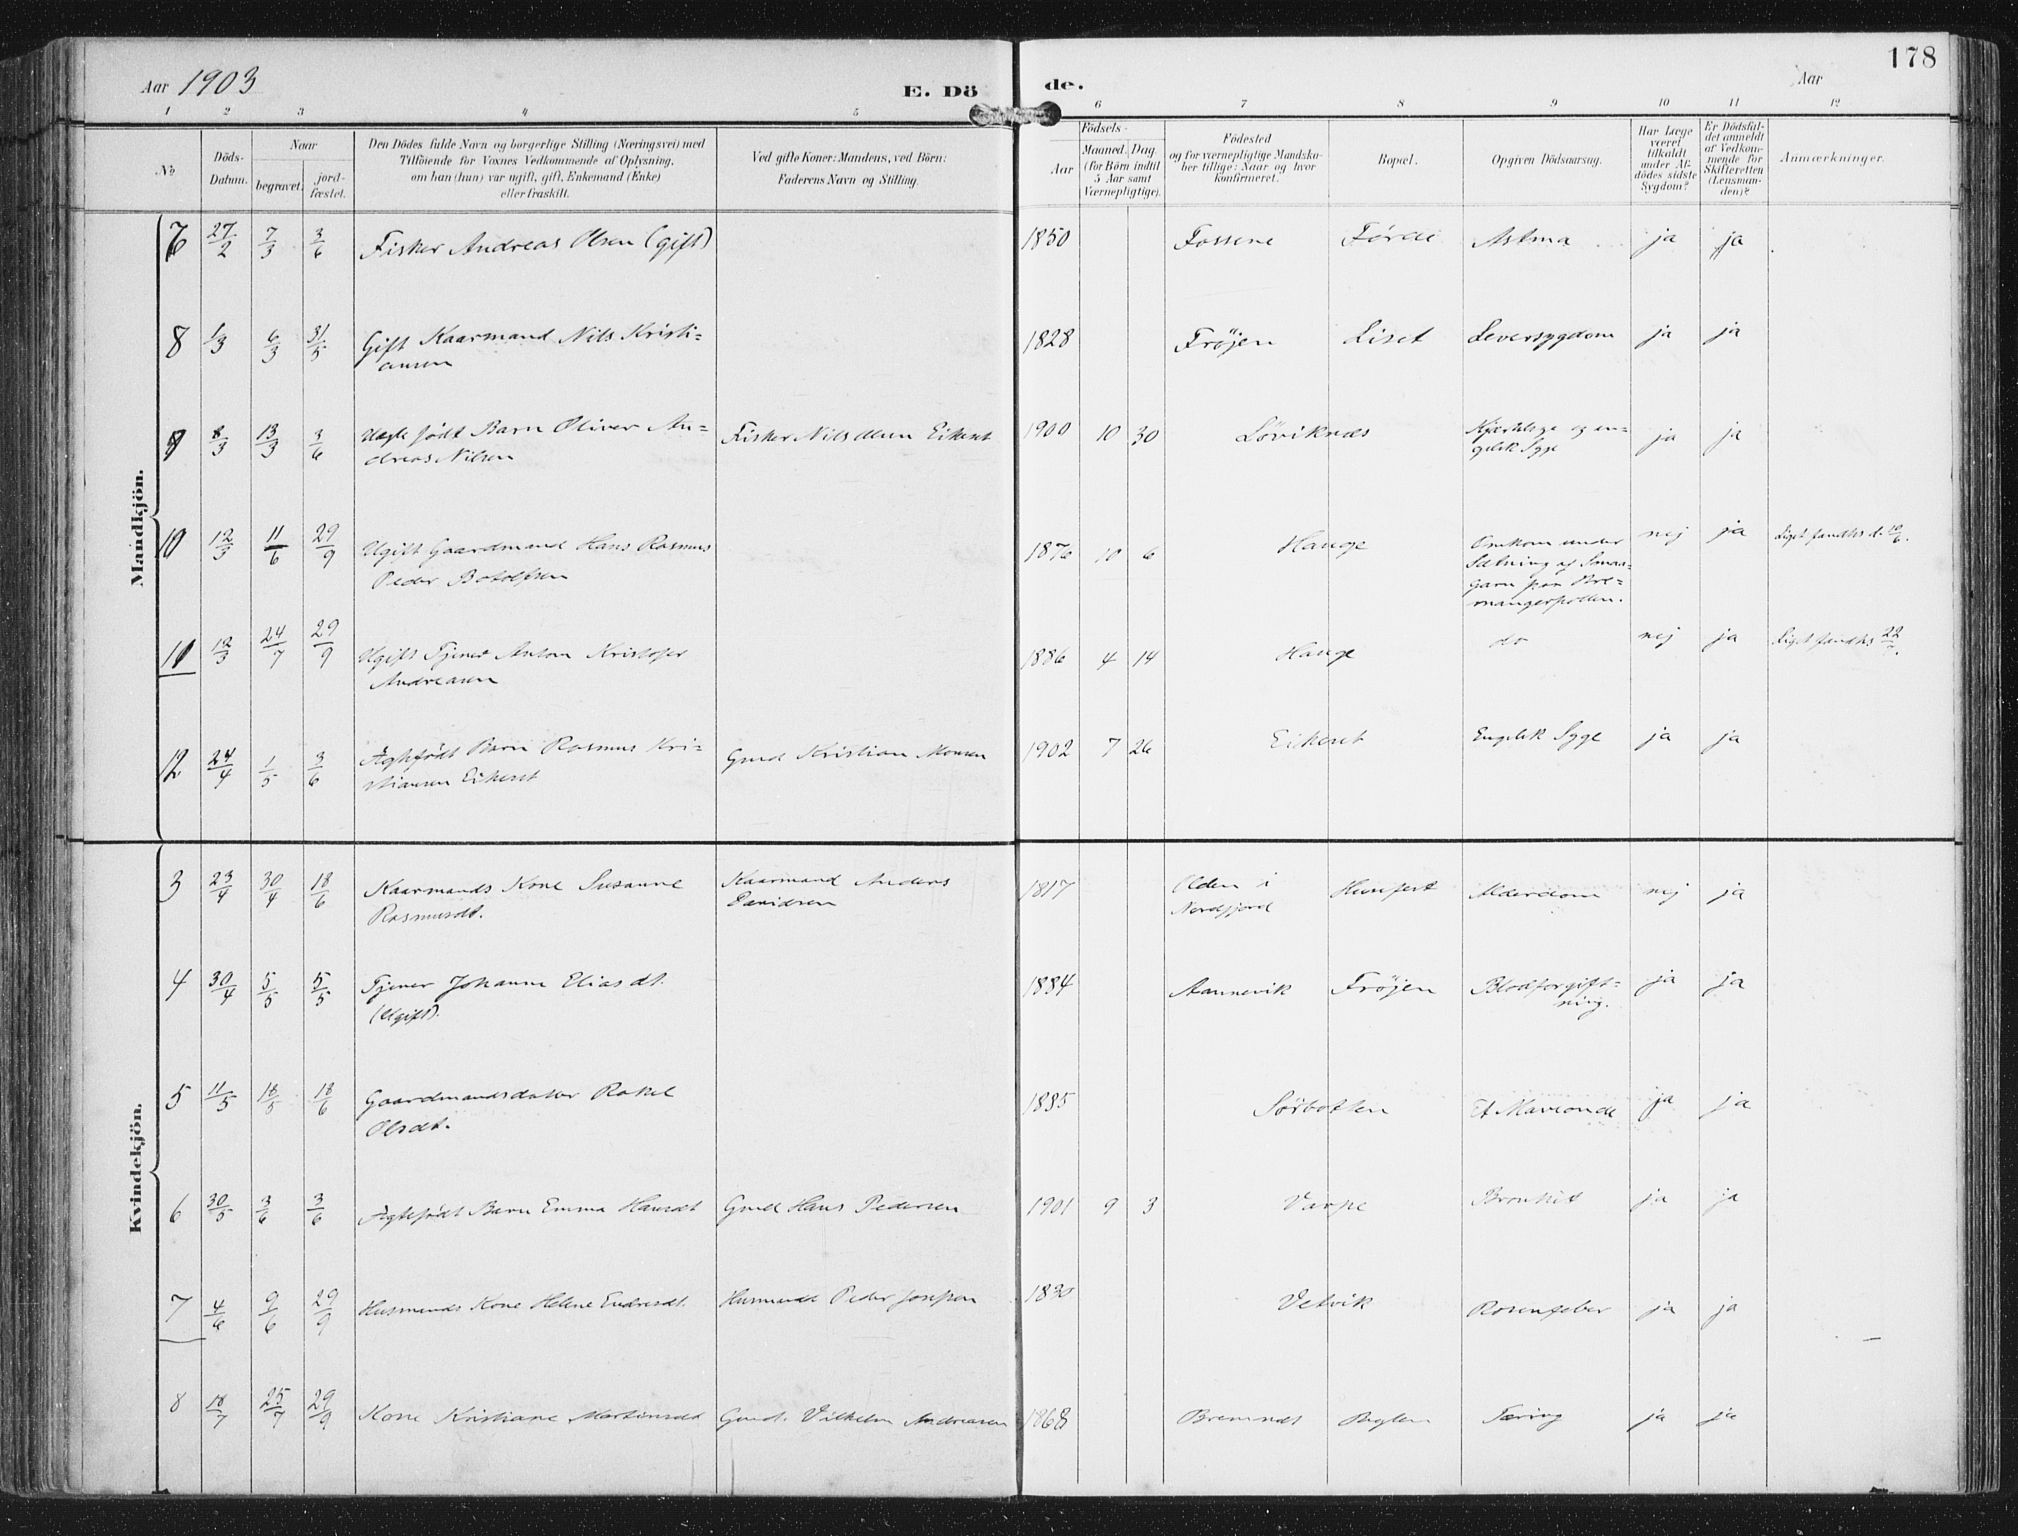 178
Aar 1903
E. Dö de.
Aar
1 2 3 4 5 6 7 8 9 10 11 12
No
Döds-
Datum.
Naar
begravet.
jord-
fæstet.
Den Dödes fulde Navn og borgerlige Stilling (Næringsvei) med
Tilföiende for Voxnes Vedkommende af Oplysning,
om han (hun) var ugift, gift, Enkemand (Enke)
eller fraskilt.
Ved gifte Koner: Mandens, ved Börn:
Faderens Navn og Stilling.
Födsels-
Aar
Maaned. Dag.
(for Börn indtil
5 Aar samt
Værnepligtige).
Födested
og for værnepligtige Mandska-
ber tillige: Naar og hvor
konfirmeret.
Bopæl.
Opgiven Dödsaarsag.
Har Læge
været
tilkaldt
under Af-
dödes sidste
Sygdom?
Er Dödsfal-
det anmeldt
af Vedkom-
mende for
Skifteretten
(Lensman-
den)?
Anmærkninger.
Mandkjön.
7 27/2 7/3 3/6 Fisker Andreas Olsen (gift) 1850 Fossene Förde Astma ja ja
8 1/3 6/3 31/5 Gift Kaarmand Nils Kristi= 1828 Fröjen Liset Leversygdom ja ja
ansen
9 8/3 13/3 3/6 Uægte født Barn Oliver An= Fisker Nils Olsen Eikeset 1900 10 30 Löviknes Kjertelsyge og en=
dreas Nilsen gelsk Syge ja ja
10 12/3 11/6 29/9 Ugift Gaardmand Hans Rasmus 1876 10 6 Hauge Omkom under nej ja Liget fandtes d. 10/6.
Peder Botolfsen Sætning af Smaa=
garn paa Bre=
mangerpollen.
11 12/3 24/7 29/9 Ugift Tjener Anton Kristofer 1886 4 14 Hauge do nej ja Liget fandtes 22/7.
Andreasen
12 24/4 1/5 3/6 Ægtefødt Barn Rasmus Kri= Gmd Kristian Monsen 1902 7 26 Eikeset Engelsk Syge ja ja
stiansen Eikeset
Kvindekjön.
3 23/4 30/4 18/6 Kaarmands Kone Susanne Kaarmand Anders 1817 Olden i Alderdom nej ja
Rasmusdt. Davidsen Nordfjord
4 30/4 5/5 5/5 Tjener Johanne Eliasdt. 1884 Aannevik Fröjen Blodforgift= ja ja
(Ugift). ning.
5 11/5 18/5 18/6 Gaardmandsdatter Rakel 1885 Sörbotten ja ja
Olsdt.
6 30/5 3/6 3/6 Ægtefødt Barn Emma Hansdt Gmd Hans Pedersen 1901 9 3 Varpe Bronkit ja ja
7 4/6 9/6 29/9 Husmands Kone Helene Endresdt. Husmand Peder Josefsen 1830 Vetvik Rosenfeber ja ja
8 18/7 25/7 29/9 Kone Kristiane Martinsdt Gmd. Vilhelm Andreasen 1868 Bremnes Tæring ja ja